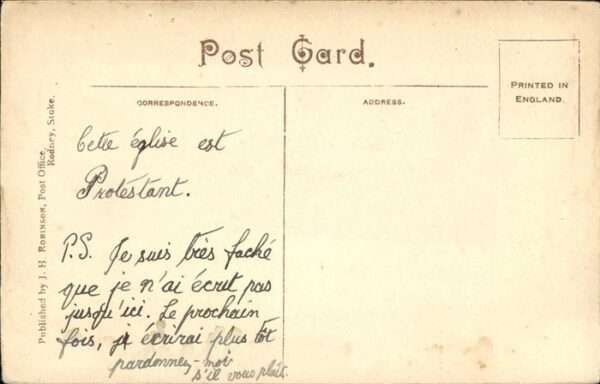 Post Card.
CORRESPONDENCE.
ADDRESS.
PRINTED IN
ENGLAND.
Published by J. H. ROBINSON, Post Office,
Rodney, Stoke.
Cette église est
Protéstant.
P.S. Je suis très faché
que, je n'ai écrit pas
jusqu'ici. Le prochain
fois, je écrirai plus tôt
pardonney-moi
s'il vous plaît.